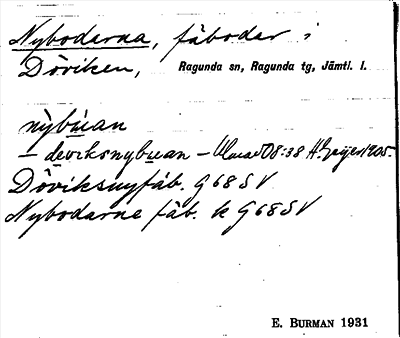 Nybodarna, fäbodar i
Döviken, Ragunda sn, Ragunda tg, Jämtl. l.
nybuan
– deviksnybuan – 08:38 H. Geijer 1905.
Döviksnyfäb. G68SV
Nybodarne fäb. k G68SV
E. BURMAN 1931